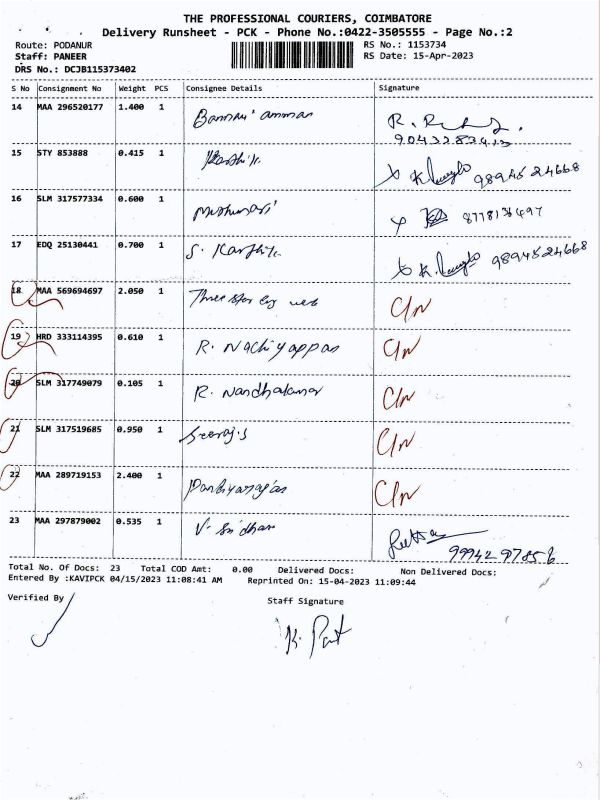 THE PROFESSIONAL COURIERS, COIMBATORE
Delivery Runsheet - PCK - Phone No.:0422-3505555 - Page No.:2
Route: PODANUR RS No.: 1153734
Staff: PANEER RS Date: 15-Apr-2023
DRS No.: DCJB115373402
S No Consignment No Weight PCS Consignee Details Signature
14 MAA 296520177 1.400 1 Bannari amman
15 STY 853888 0.415 1 Karthik 98945 24668
16 SLM 317577334 0.600 1 8778136497
17 EDQ 25130441 0.700 1 S. Karthik 9894524668
18 MAA 569694697 2.050 1 Three star C/n
19 HRD 333114395 0.610 1 R. Nachiyappan C/n
20 SLM 317749079 0.105 1 R. Nandhakumar C/n
21 SLM 317519685 0.950 1 C/n
22 MAA 289719153 2.400 1 C/n
23 MAA 297879002 0.535 1 V. Sridhar 99942 97856
Total No. Of Docs: 23 Total COD Amt: 0.00 Delivered Docs: Non Delivered Docs:
Entered By :KAVIPCK 04/15/2023 11:08:41 AM Reprinted On: 15-04-2023 11:09:44
Verified By Staff Signature